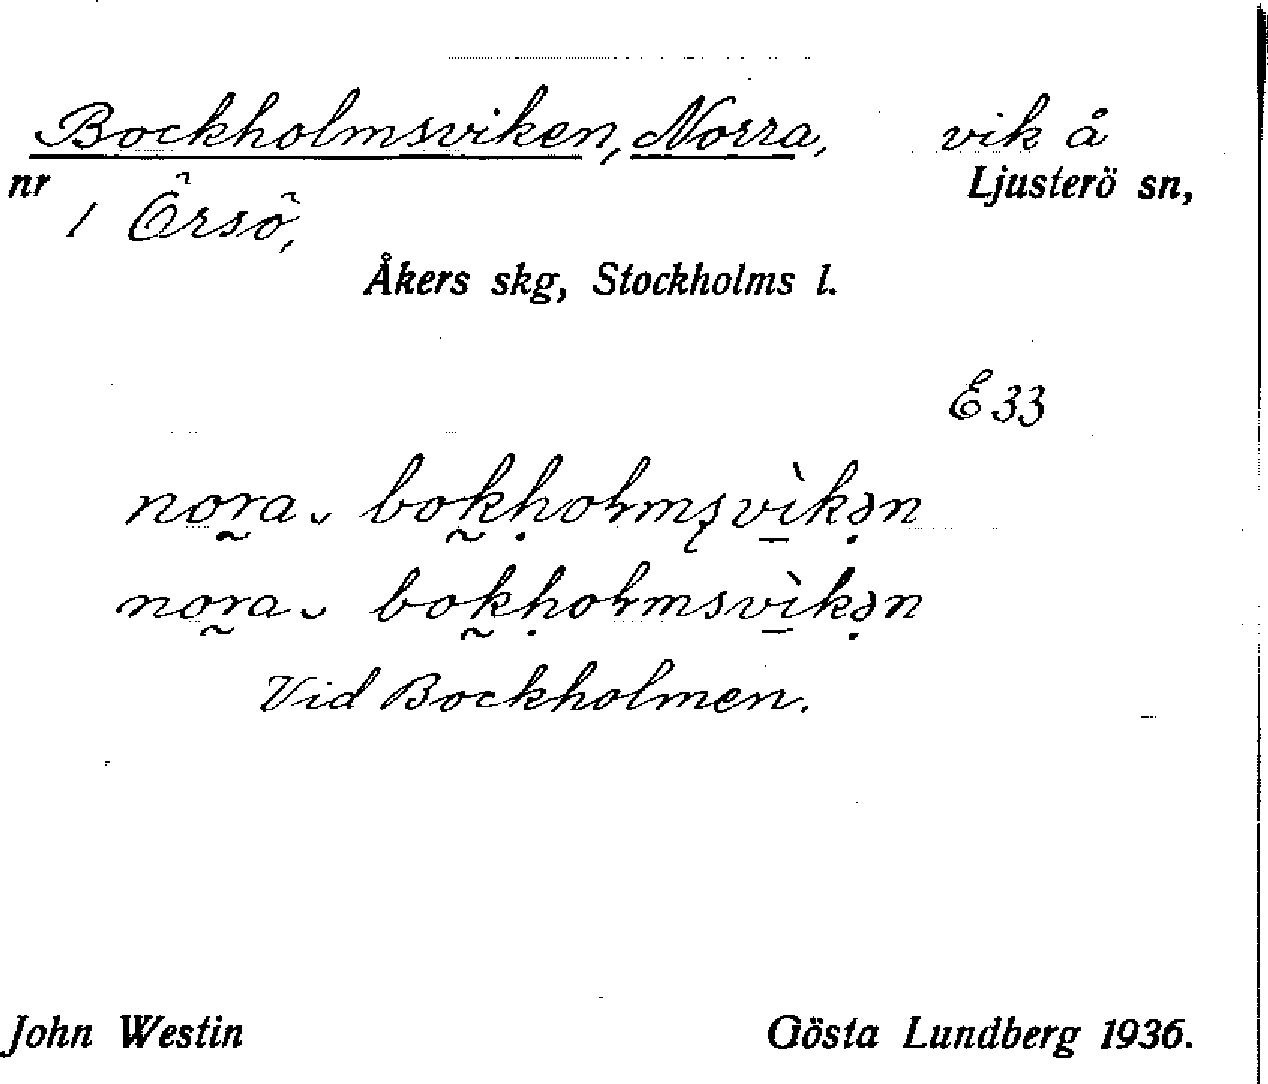 Bockholmsviken, Norra, vik å
nr 1 Örsö, Ljusterö sn,
Åkers skg, Stockholms l.
E 33
nora bokholmsvìkən
nora bokholmsvìkən
Vid Bockholmen.
John Westin Gösta Lundberg 1936.